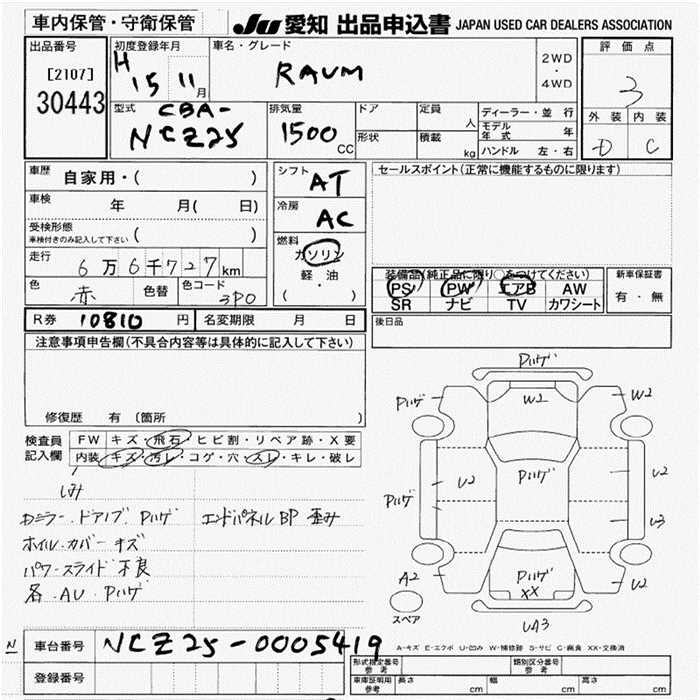 車内保管・守衛保管
JU 愛知 出品申込書 JAPAN USED CAR DEALERS ASSOCIATION
出品番号
[2107]
30443
初度登録年月
H 15 11月
車名・グレード
RAUM
2WD
・
4WD
評価点
3
外装 内装
D C
型式
CBA-
NCZ25
排気量
1500 CC
ドア
形状
定員 人
積載 kg
ディーラー・並行
モデル年式 年
ハンドル 左・右
車歴 自家用・( )
車検 年 月( 日)
受検形態
車検付きのみ記入して下さい ( )
走行 6万6千727km
色 赤 色替 色コード 3P0
シフト AT
冷房 AC
燃料
ガソリン
軽・油
( )
セールスポイント(正常に機能するものに限ります)
装備品(純正品に限り○をつけてください)
PS PW エアB AW
SR ナビ TV カワシート
新車保証書
有・無
R券 10810 円 名変期限 月 日
後日品
注意事項申告欄(不具合内容等は具体的に記入して下さい)
修復歴 有 (箇所 )
検査員
記入欄
FW キズ・飛石・ヒビ割・リペア跡・X要
内装 キズ・汚レ・コゲ・穴・スレ・キレ・破レ
シミ
カニラー.ドアノブ Pハゲ エンドパネル BP 歪み
ホイル.カバー キズ
パワースライド不良
各.AU.Pハゲ
Pハゲ
Pハゲ
W2
W2
Pハゲ
U2
Pハゲ
U2
U3
A2
Pハゲ
XX
U2
UA3
スペア
A-キズ E-エクボ U-凹み W-補修跡 S-サビ C-腐食 XX-交換済
N
車台番号 NCZ25-0005419
登録番号
形式指定番号
参考
類別区分番号
参考
車庫証明用
参考
長さ cm 幅 cm 高さ cm